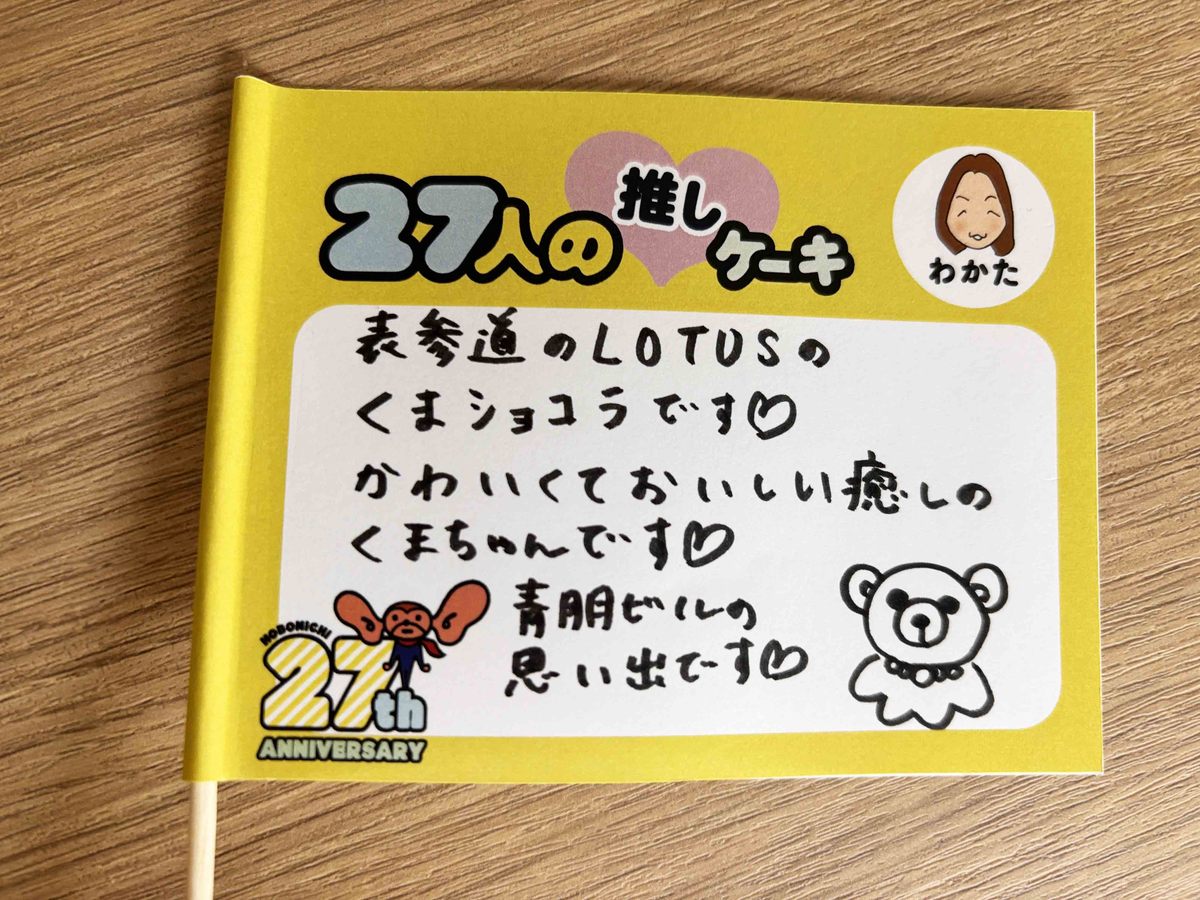 27人の推しケーキ
わかた
表参道のLOTUSの
くまショコラです♡
かわいくておいしい癒しの
くまちゃんです♡
青朋ビルの
思い出です♡
HOBONICHI
27th
ANNIVERSARY